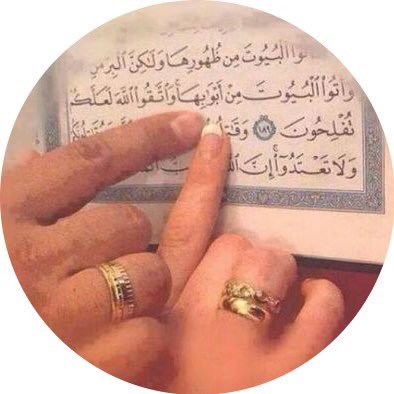 تُوا۟ ٱلْبُيُوتَ مِن ظُهُورِهَا وَلَٰكِنَّ ٱلْبِرَّ مَنِ
وَأْتُوا۟ ٱلْبُيُوتَ مِنْ أَبْوَٰبِهَا وَٱتَّقُوا۟ ٱللَّهَ لَعَلَّكُمْ
تُفْلِحُونَ ١٨٩ وَقَٰتِ
وَلَا تَعْتَدُوٓا۟ إِنَّ ٱللَّ